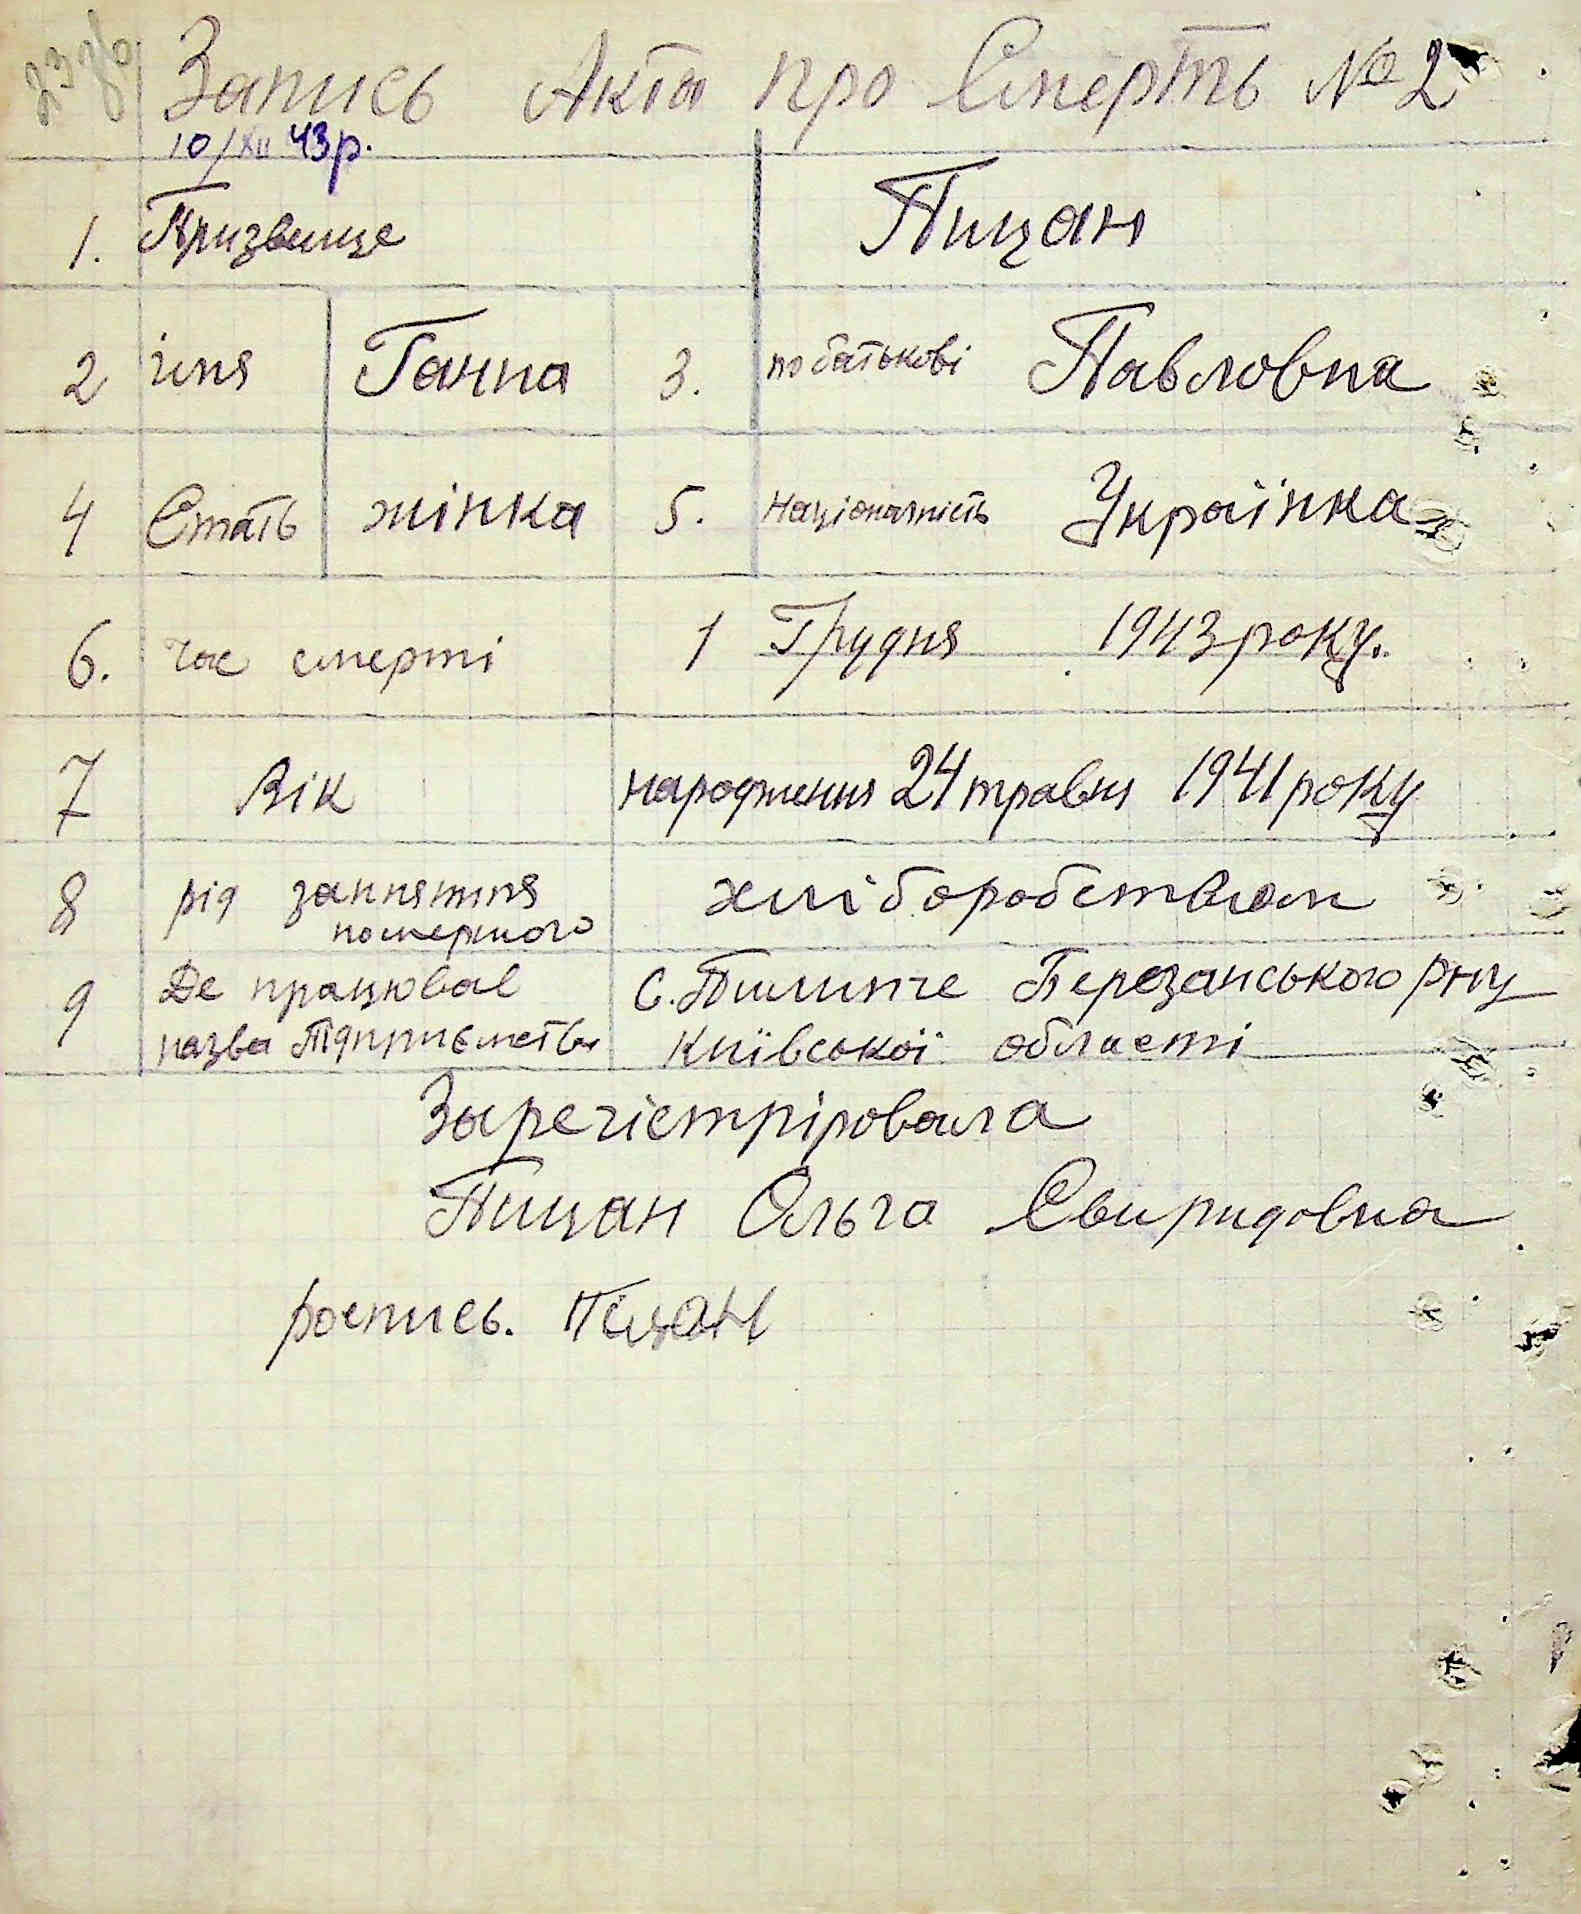 Запись Акта про Смерть № 2
10/XII 43р.
1. Призвище Пицан
2 імя Ганна 3. по батькові Павловна
4 Стать жінка 5. Національність Українка
6. час смерті 1 Грудня 1943 року.
7 Вік народження 24 травня 1941 року
8 рід занняття хліборобством
помершого
9 Де працював С. Пилипче Березанського р-ну
назва Підприємства Київської області
Зарегістріровала
Пицан Ольга Свиридовна
роспись. Піцан